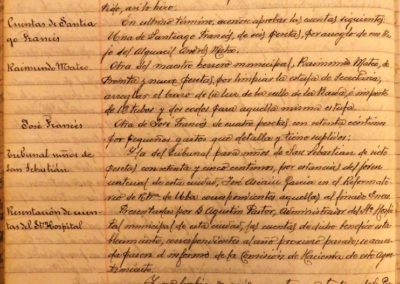 tido, así lo hizo.
Cuentas de Santia-
go Francés
En última reunión, acordó aprobar las cuentas siguientes:
Una de Santiago Francés, de seis pesetas, por arreglo de un
jo del Alguacil Andrés Mateo.
Raimundo Mateo
Otra del maestro herrero municipal, Raimundo Mateo, de
treinta y nueve pesetas, por limpiar la estufa de Secretaría,
arreglar el de la luz de la calle de la e importe
de tubos y dos codos para aquella misma estufa.
José Francés
Otra de José Francés de cuatro pesetas con setenta céntimos
por pequeños gastos que detalla y tiene suplidos.
Tribunal niños de
San Sebastián
Y la del Tribunal para niños de San Sebastián de siete
pesetas con veinte y cinco céntimos, por estancias del joven
natural de esta ciudad, José García en el Reformato-
rio de correspondientes aquellas al pasado Enero.
Presentación de cuen-
tas del Sto Hospital
Presentadas por D. Agustín Pastor, Administrador del Sto Hos-
pital municipal de esta ciudad, las cuentas de dicho benéfico esta-
blecimiento, correspondientes al año próximo pasado, se acuer-
da pasen a informe de la Comisión de Hacienda de este Ayun-
tamiento.